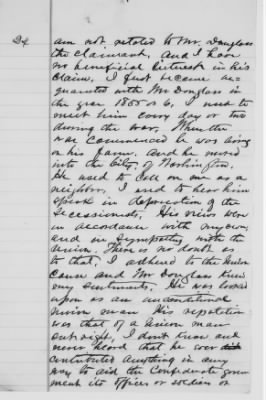 24 am not related to Mr. Douglass
the claimant, and I have
no beneficial interest in his
claim. I first became ac-
quainted with Mr Douglass in
the year 1855 or 6, I used to
meet him every day or two
during the war. When the
war commenced he was living
on his farm, and he moved
into the City of Washington.
He used to call on me as a
neighbor, I used to hear him
speak in deprecation of the
secessionists. His views were
in accordance with my own,
and in sympathy with the
union. There is no doubt as
to that. I adhered to the Union
cause and Mr Douglass knew
my sentiments. He was looked
upon as an unconditional
union man. His reputation
was that of a Union man
outright, I dont know and
never heard that he ever
contributed anything in any
way to aid the Confederate govern
ment its officers or soldiers or